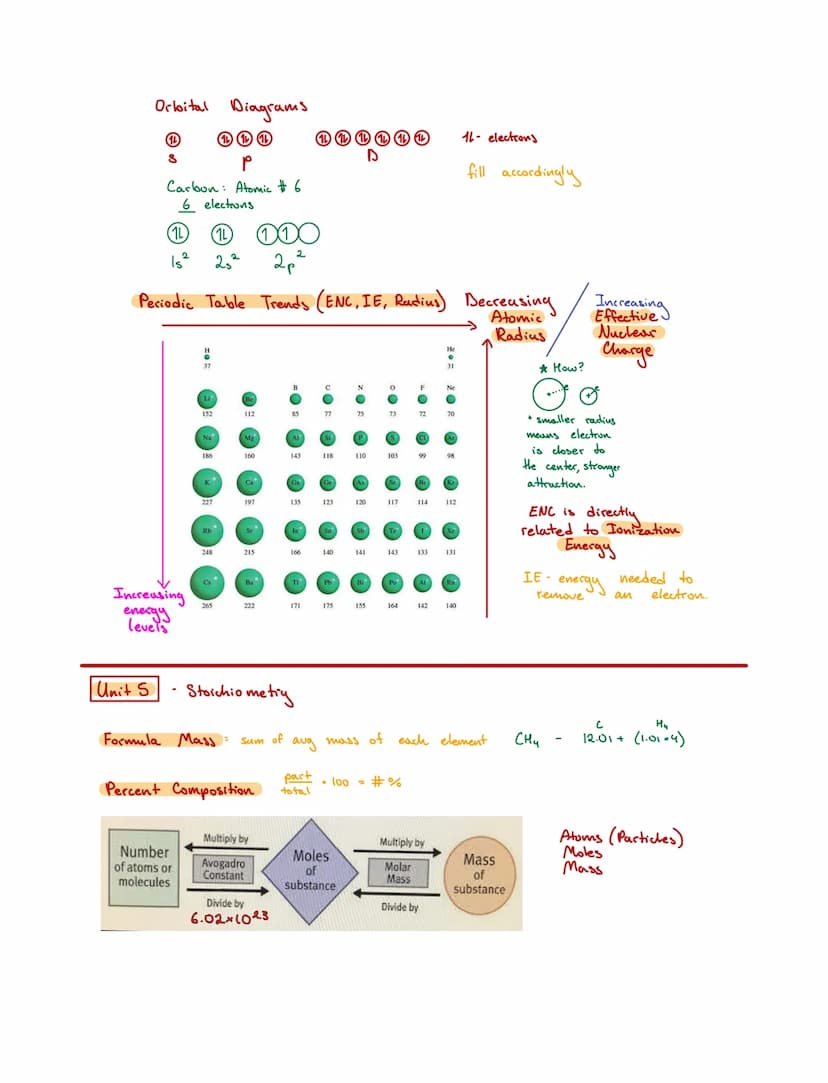 Orbital Diagrams
⥮ ⥮⥮⥮ ⥮⥮⥮⥮⥮⥮ ⥮- electrons
s p D
fill accordingly
Carbon: Atomic # 6
6 electrons
⥮ ⥮ ↿↿
1s² 2s² 2p²
Periodic Table Trends (ENC, IE, Radius)
Decreasing
Atomic
Radius
Increasing
Effective
Nuclear
Charge
H He
37 31
B C N O F Ne
Li Be
152 112 85 77 75 73 72 70
Na Mg Al Si P S Cl Ar
186 160 143 118 110 103 99 98
K Ca Ga Ge As Se Br Kr
227 197 135 123 120 117 114 112
Rb Sr In Sn Sb Te I Xe
248 215 166 140 141 143 133 131
Cs Ba Tl Pb Bi Po At Rn
265 222 171 175 155 164 142 140
Increasing
energy
levels
* How?
e e
* smaller radius
means electron
is closer to
the center, stronger
attraction.
ENC is directly
related to Ionization
Energy
IE - energy needed to
remove an electron.
Unit 5 - Stoichiometry
Formula Mass: sum of avg mass of each element
C H₄
CH₄ - 12.01 + (1.01*4)
Percent Composition
part
total
* 100 = #%
Number
of atoms or
molecules
Multiply by
Avogadro
Constant
Divide by
6.02×10²³
Moles
of
substance
Multiply by
Molar
Mass
Divide by
Mass
of
substance
Atoms (Particles)
Moles
Mass